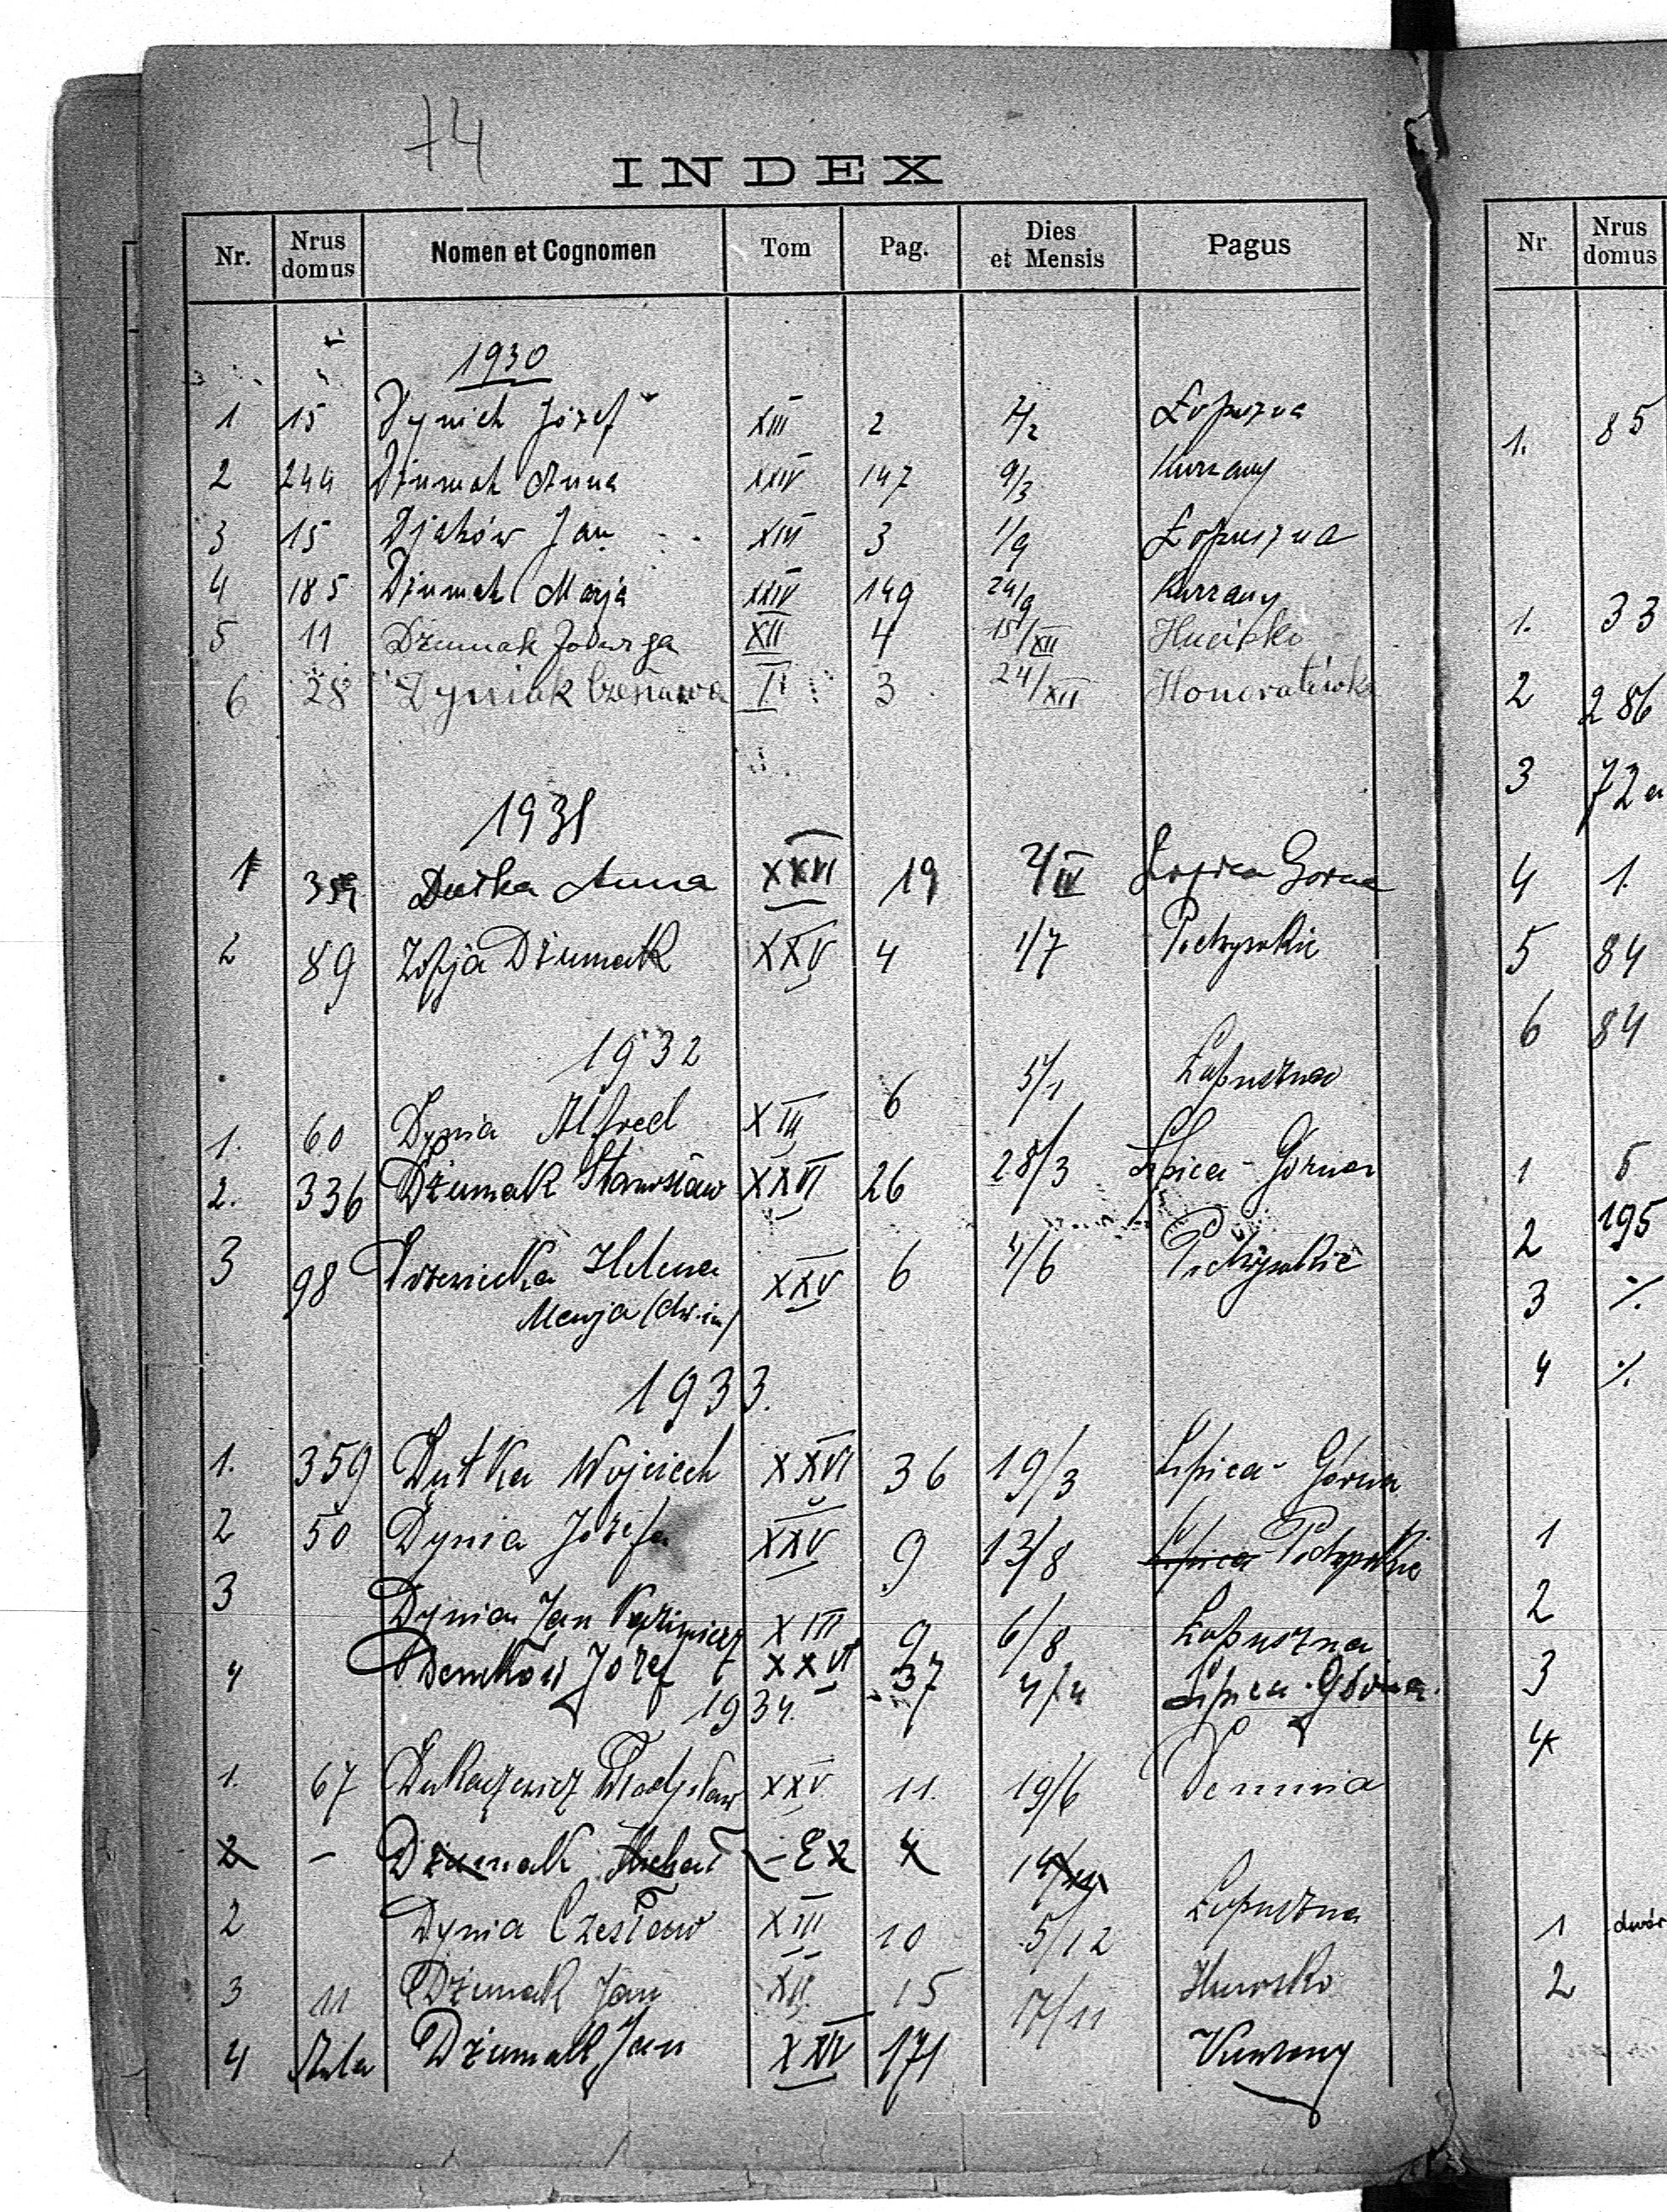 74
INDEX
Nr. Nrus domus Nomen et Cognomen Tom Pag. Dies et Mensis Pagus
1930
1 15 Dynich Józef XIII 2 7/2 Łopuszna
2 244 Dżumak Anna XXIV 147 9/3 Kurzany
3 15 Djaków Jan XIII 3 1/9 Łopuszna
4 185 Dżumak Marja XXIV 149 24/9 Kurzany
5 11 Dżumak Jadwiga XII 4 15/XII Hucisko
6 28 Dyniak Czesława II 3 24/XII Honoratówka
1931
1 Anna XXVI 19 Lipica Górna
2 89 Zofja Dżumak XXV 4 1/7 Potrysokie
1932
1. 60 Dynia Alfred XIII 6 5/1 Łopuszna
2. 336 Dżumak Stanisław XXVI 26 28/3 Lipica-Górna
3 98 Helena XXV 6 4/6
Marja (dw. im)
1933.
1. 359 Dutka Wojciech XXVI 36 19/3 Lipica-Górna
2 50 Dynia Józefa XXV 9 13/8 Lipica
3 Dynia Jan Kazimierz XIII 9 6/8 Łopuszna
4 Demków Józef XXVI 37 4/4 Lipica-Górna.
1934.
1. 67 Dukaczewicz Władysław XXV 11. 19/6 Demnia
2 - Dżumak Michał - Ex 4
2 Dynia Czesław XIII 10 5/12 Łopuszna
3 11 Dżumak Jan XII 15 17/11 Hucisko
4 Dżumak Jan XXIV 171 Kurzany
Nr Nrus domus
1. 85
1. 33
2 286
3 72a
4 1.
5 84
6 84
1 5
2 195
3 %
4 %
1
2
3
4
1 dwór
2